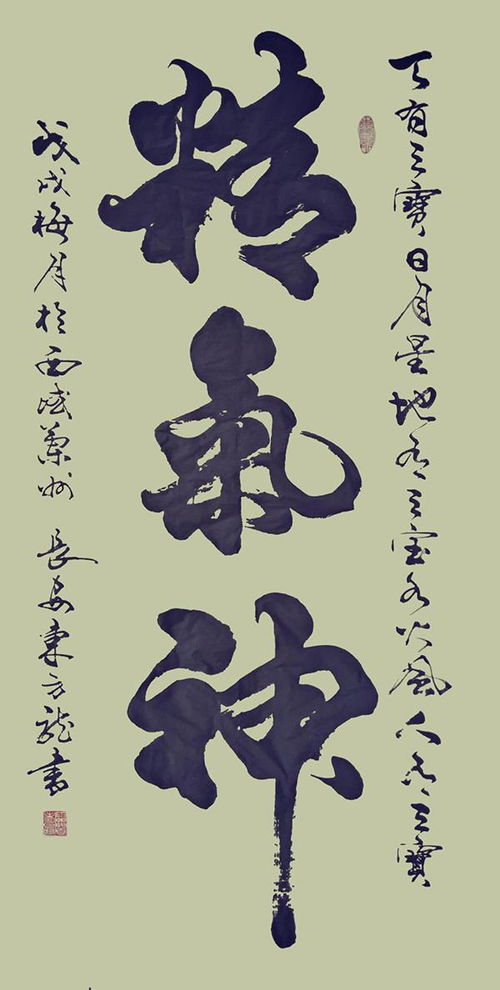 天有三寶日月星地有三宝水火風人有三寶
精氣神
戊戌梅月於西域蘭州 長安東方龍書